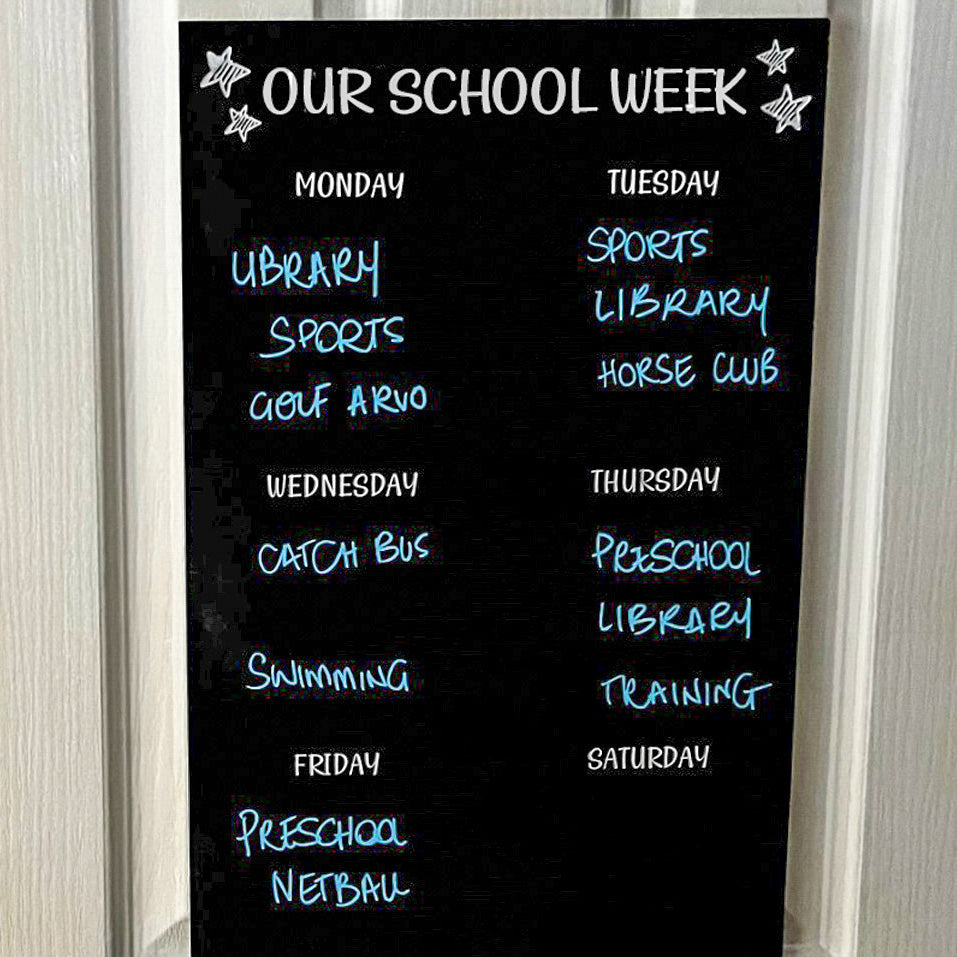 OUR SCHOOL WEEK
MONDAY
LIBRARY
SPORTS
GOLF ARVO
TUESDAY
SPORTS
LIBRARY
HORSE CLUB
WEDNESDAY
CATCH BUS
SWIMMING
THURSDAY
PRESCHOOL
LIBRARY
TRAINING
FRIDAY
PRESCHOOL
NETBALL
SATURDAY